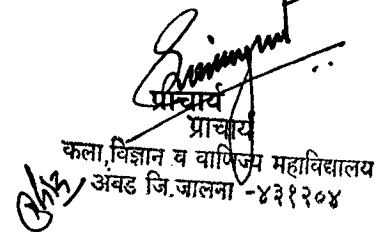 प्राचार्य
प्राचार्य
कला,विज्ञान व वाणिज्य महाविद्यालय
अंबड जि.जालना -४३१२०४